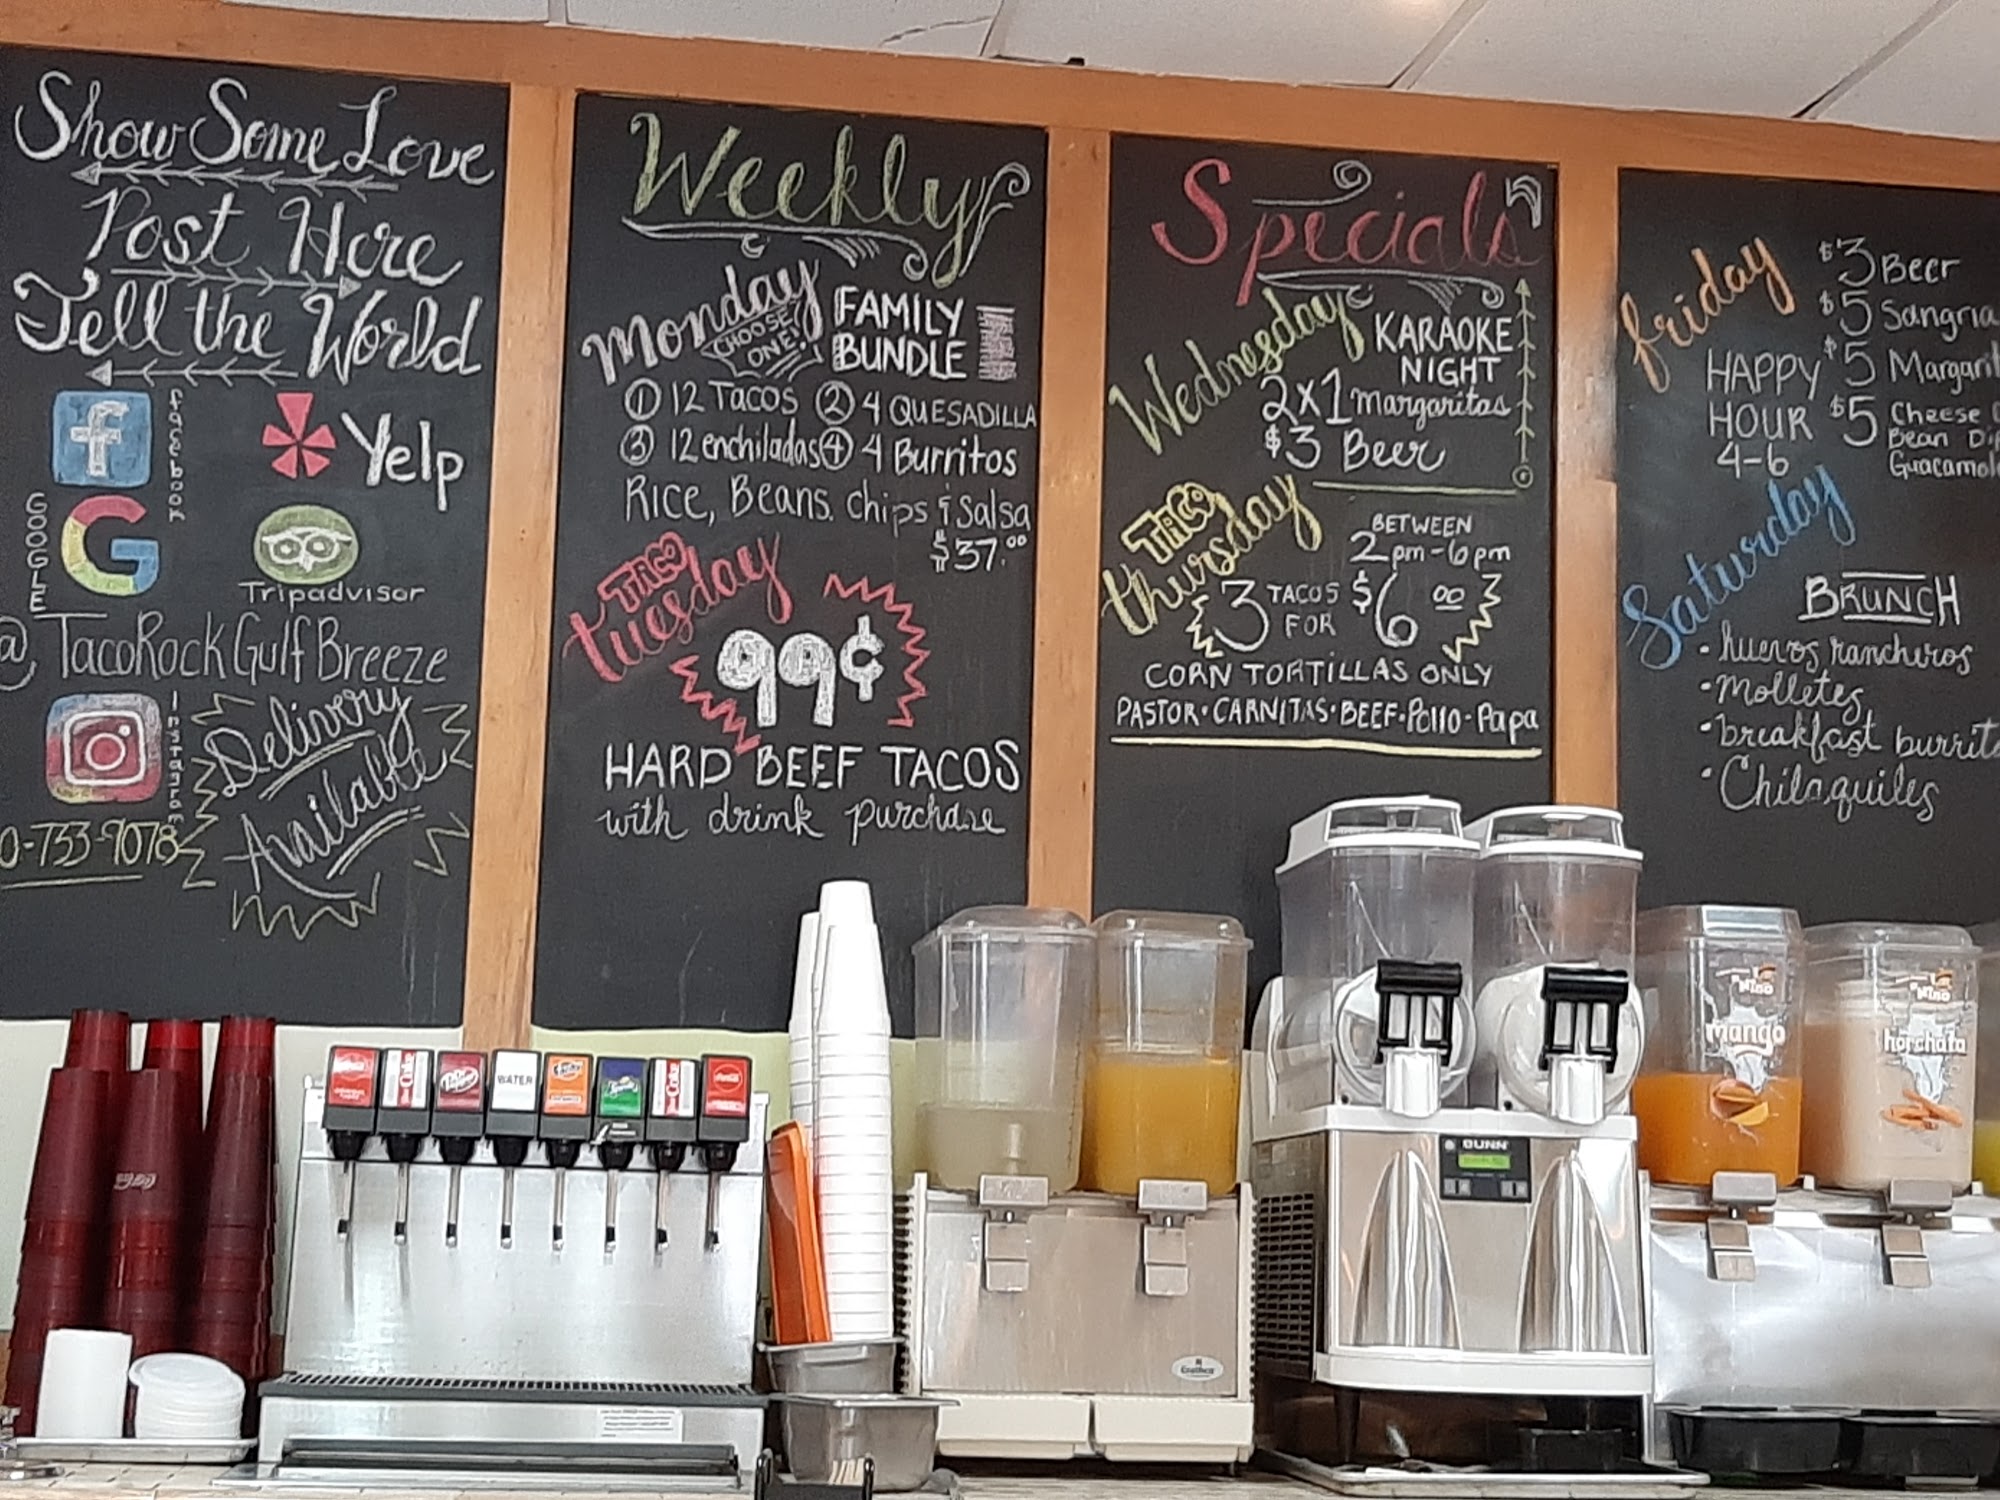 Show Some Love
Post Here
Tell the World
facebook
Yelp
GOOGLE
Tripadvisor
@TacoRockGulfBreeze
Instagram
Delivery
Available
0-733-9078
Weekly
Monday
CHOOSE
ONE!
FAMILY
BUNDLE
① 12 TACOS ② 4 QUESADILLA
③ 12 enchiladas ④ 4 Burritos
RICE, BEANS. chips & Salsa
$37.00
TACO
tuesday
99¢
HARD BEEF TACOS
with drink purchase
Specials
Wednesday
KARAOKE
NIGHT
2x1 margaritas
$3 Beer
TACO
thursday
BETWEEN
2pm-6pm
3 TACOS FOR $6.00
CORN TORTILLAS ONLY
PASTOR·CARNITAS·BEEF·Pollo-Papa
friday
HAPPY
HOUR
4-6
$3 Beer
$5 Sangria
$5 Margarit
$5 Cheese
Bean Dip
Guacamole
Saturday
BRUNCH
• huevos rancheros
• Molletes
• breakfast burrito
• Chilaquiles
Coca-Cola
Diet Coke
Dr Pepper
WATER
Fanta
Sprite
Diet Coke
Coca-Cola
BUNN
Crathco
mango
horchata